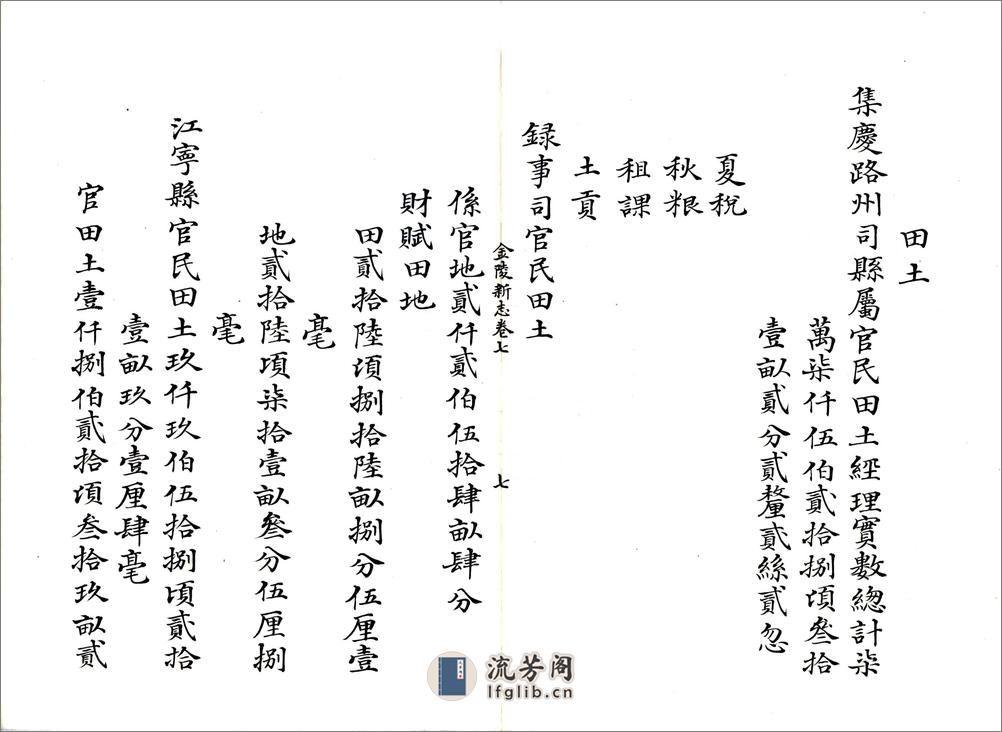 田土
集慶路州司縣屬官民田土經理實數總計柒
萬柒仟伍伯貳拾捌頃叄拾
壹畒貳分貳釐貳絲貳忽
夏稅
秋粮
租課
土貢
録事司官民田土
金陵新志卷七
七
係官地貳仟貳伯伍拾肆畒肆分
財賦田地
田貳拾陸頃捌拾陸畒捌分伍厘壹
毫
地貳拾陸頃柒拾壹畒叄分伍厘捌
毫
江寧縣官民田土玖仟玖伯伍拾捌頃貳拾
壹畒玖分壹厘肆毫
官田土壹仟捌伯貳拾頃叄拾玖畒貳
流芳阁
lfglib.cn